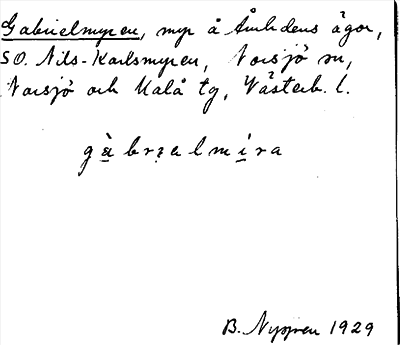 Gabrielmyren, myr å Åmlidens ägor,
SO. Nils-Karlsmyren, Norsjö sn,
Norsjö och Malå tg, Västerb. l.
gàbrɪalmíra
B. Nygren 1929